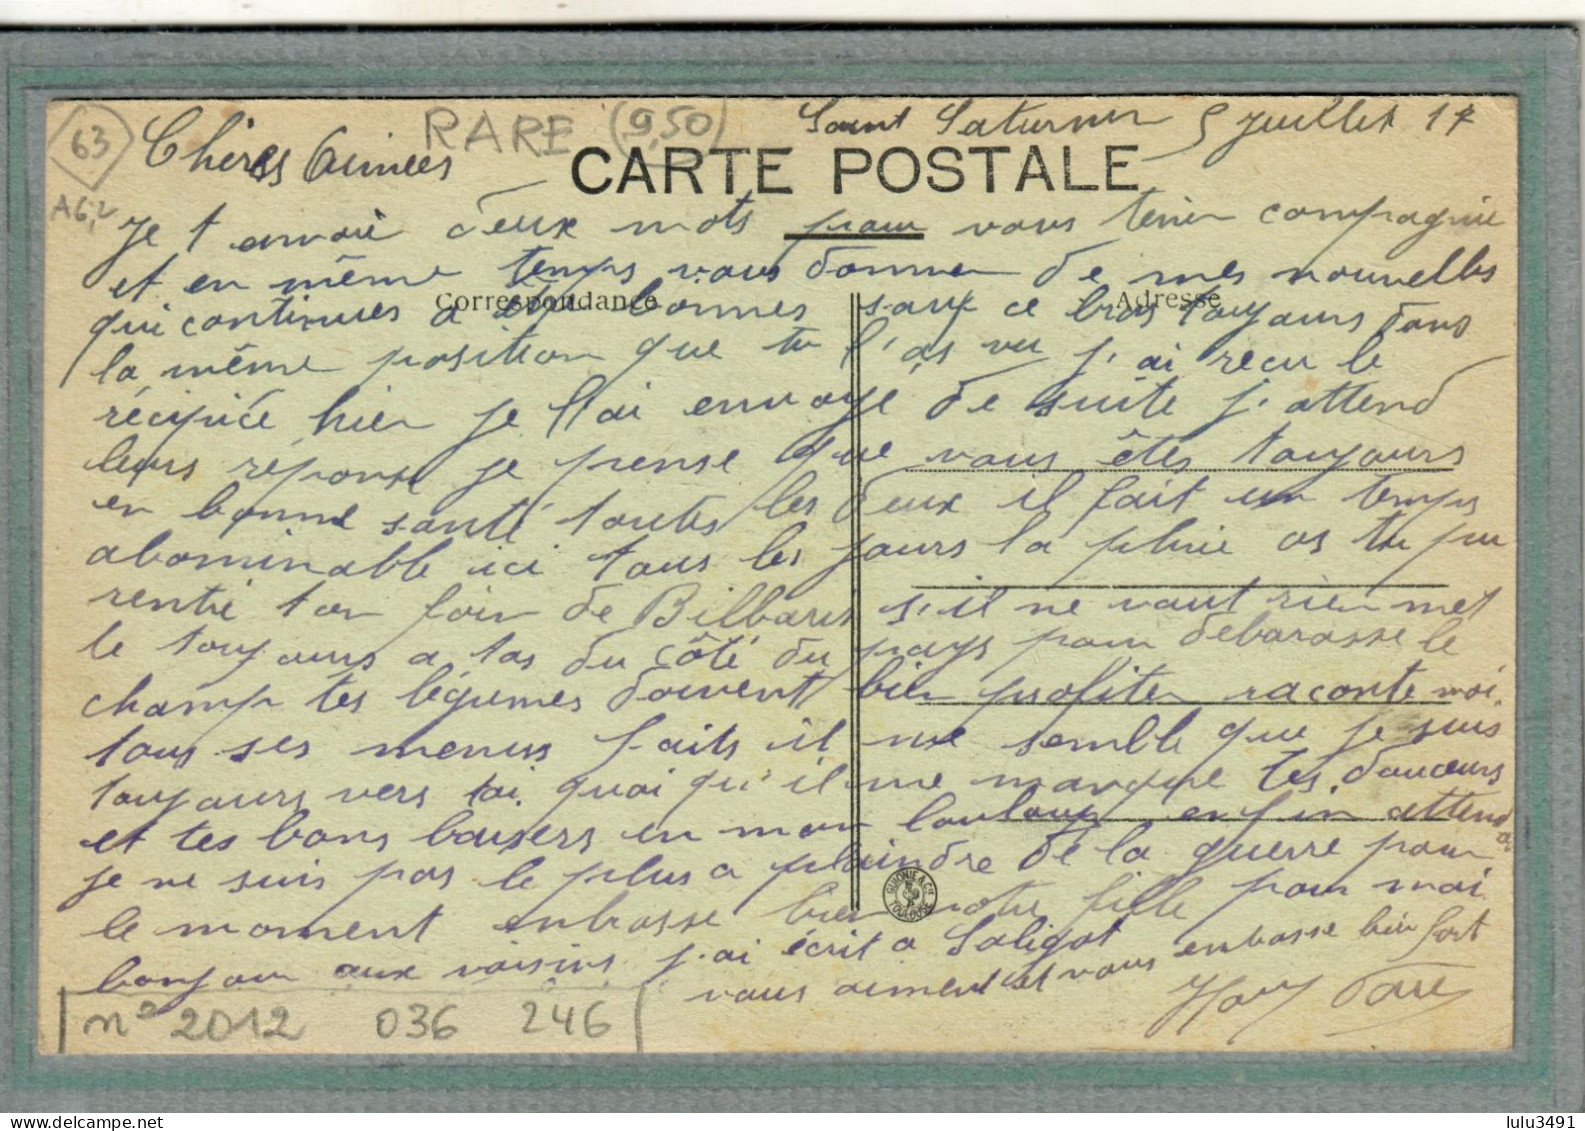 63
A6,2
RARE (9,50)
Saint Saturnin 5 juillet 17
Chères Aimées
CARTE POSTALE
Je t envoie deux mots pour vous tenir compagnie
et en même temps vous donner de mes nouvelles
Correspondance
Adresse
qui continues a être bonnes sauf ce bras toujours dans
la même position que tu l'as vu j'ai recu le
récipicé hier je l'ai envoyé de suite j'attend
leurs réponse je pense que vous êtes toujours
en bonne santé toutes les deux il fait un temps
abominable ici tous les jours la pluie as tu pu
rentré ton foin de s'il ne vaut rien met
le toujours a tas du côté du pays pour debarasse le
champ tes légumes doivent bien profiter raconte moi
tous ses menus faits il me semble que je suis
toujours vers toi quoi qu'il me manque tes douceurs
et tes bons baisers en mon loulou enfin attend
je ne suis pas le plus a plaindre de la guerre pour
le moment enbrasse bien notre fille pour moi
bonjour aux voisins j'ai écrit a Saligot
vous aiment et vous enbasse bien fort
GUIONIE & Cie TOULOUSE
n° 2012 036 246
lulu3491